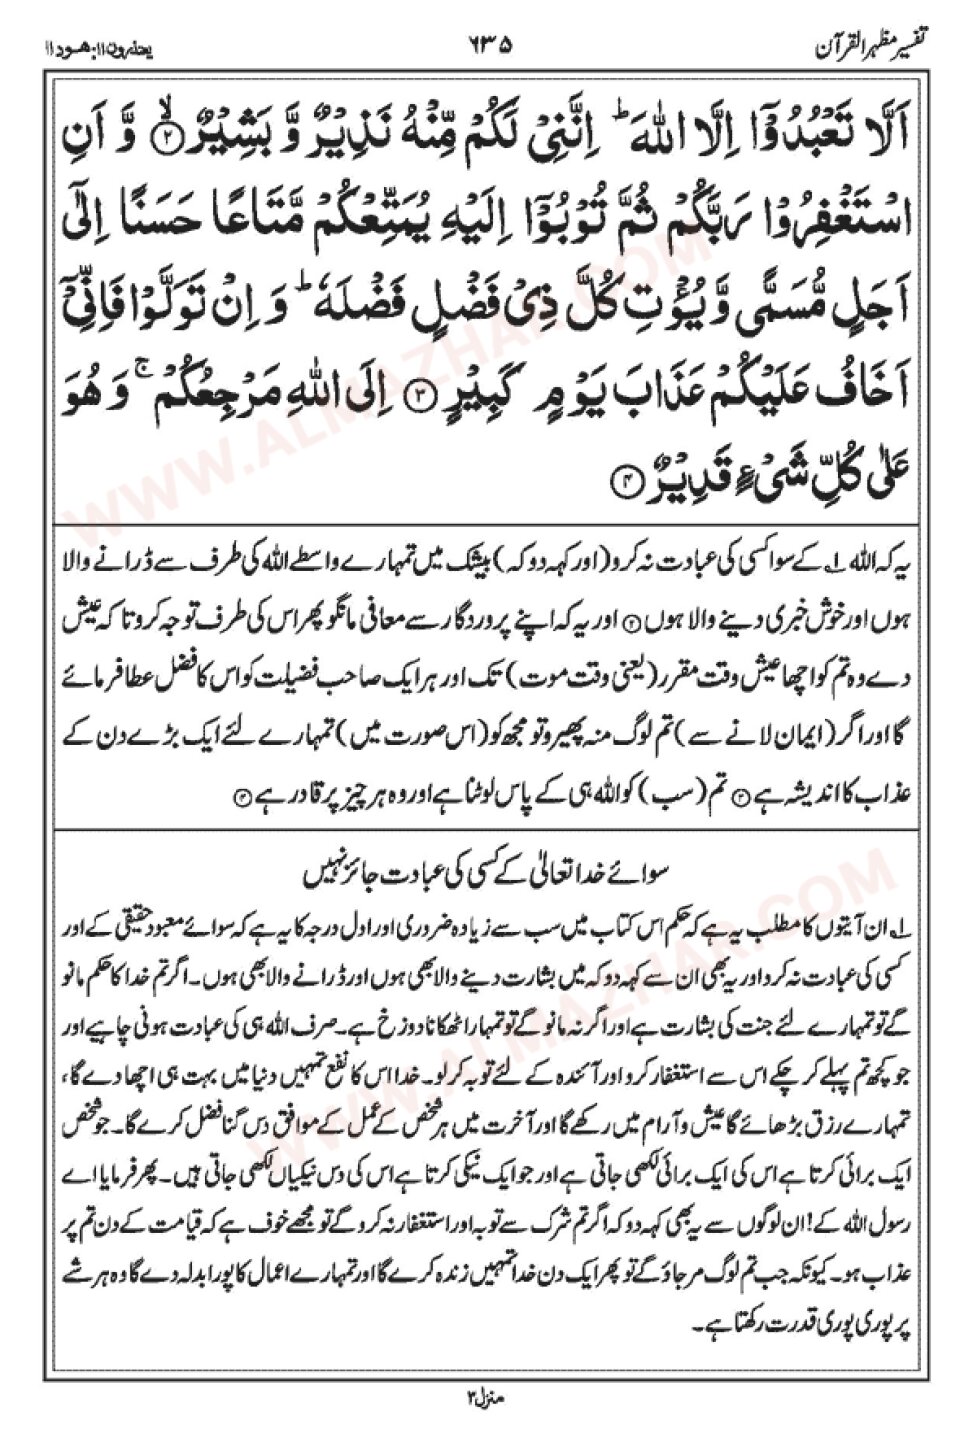 تفسیر مظہر القرآن
۶۳۵
یعتذرون ۱۱: ھود ۱۱
اَلَّا تَعْبُدُوْٓا اِلَّا اللّٰهَ ؕ اِنَّنِیْ لَكُمْ مِّنْهُ نَذِیْرٌ وَّ بَشِیْرٌ ۙ﴿۲﴾ وَّ اَنِ
اسْتَغْفِرُوْا رَبَّكُمْ ثُمَّ تُوْبُوْٓا اِلَیْهِ یُمَتِّعْكُمْ مَّتَاعًا حَسَنًا اِلٰۤی
اَجَلٍ مُّسَمًّی وَّ یُؤْتِ كُلَّ ذِیْ فَضْلٍ فَضْلَهٗ ؕ وَ اِنْ تَوَلَّوْا فَاِنِّیْۤ
اَخَافُ عَلَیْكُمْ عَذَابَ یَوْمٍ كَبِیْرٍ ﴿۳﴾ اِلَی اللّٰهِ مَرْجِعُكُمْ ۚ وَ هُوَ
عَلٰی كُلِّ شَیْءٍ قَدِیْرٌ ﴿۴﴾
یہ کہ اللہ ۱؎ کے سوا کسی کی عبادت نہ کرو (اور کہہ دو کہ) بیشک میں تمہارے واسطے اللہ کی طرف سے ڈرانے والا
ہوں اور خوش خبری دینے والا ہوں ﴿۲﴾ اور یہ کہ اپنے پروردگار سے معافی مانگو پھر اس کی طرف توجہ کرو تا کہ عیش
دے وہ تم کو اچھا عیش وقت مقرر (یعنی وقت موت) تک اور ہر ایک صاحب فضیلت کو اس کا فضل عطا فرمائے
گا اور اگر (ایمان لانے سے) تم لوگ منہ پھیرو تو مجھ کو (اس صورت میں) تمہارے لئے ایک بڑے دن کے
عذاب کا اندیشہ ہے ﴿۳﴾ تم (سب) کو اللہ ہی کے پاس لوٹنا ہے اور وہ ہر چیز پر قادر ہے ﴿۴﴾
سوائے خدا تعالیٰ کے کسی کی عبادت جائز نہیں
۱؎ ان آیتوں کا مطلب یہ ہے کہ حکم اس کتاب میں سب سے زیادہ ضروری اور اول درجہ کا یہ ہے کہ سوائے معبود حقیقی کے اور
کسی کی عبادت نہ کرو اور یہ بھی ان سے کہہ دو کہ میں بشارت دینے والا بھی ہوں اور ڈرانے والا بھی ہوں۔ اگر تم خدا کا حکم مانو
گے تو تمہارے لئے جنت کی بشارت ہے اور اگر نہ مانو گے تو تمہارا ٹھکانا دوزخ ہے۔ صرف اللہ ہی کی عبادت ہونی چاہیے اور
جو کچھ تم پہلے کر چکے اس سے استغفار کرو اور آئندہ کے لئے توبہ کر لو۔ خدا اس کا نفع تمہیں دنیا میں بہت ہی اچھا دے گا،
تمہارے رزق بڑھائے گا عیش و آرام میں رکھے گا اور آخرت میں ہر شخص کے عمل کے موافق دس گنا فضل کرے گا۔ جو شخص
ایک برائی کرتا ہے اس کی ایک برائی لکھی جاتی ہے اور جو ایک نیکی کرتا ہے اس کی دس نیکیاں لکھی جاتی ہیں۔ پھر فرمایا اے
رسول اللہ کے! ان لوگوں سے یہ بھی کہہ دو کہ اگر تم شرک سے توبہ اور استغفار نہ کرو گے تو مجھے خوف ہے کہ قیامت کے دن تم پر
عذاب ہو۔ کیونکہ جب تم لوگ مرجاؤ گے تو پھر ایک دن خدا تمہیں زندہ کرے گا اور تمہارے اعمال کا پورا بدلہ دے گا وہ ہر شے
پر پوری پوری قدرت رکھتا ہے۔
منزل ۳
WWW.ALMAZHAR.COM
WWW.ALMAZHAR.COM